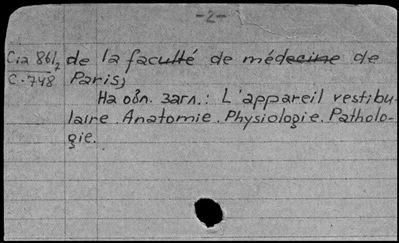 -2-
Cia 86/2 de la faculté de médecine de
C-748 Paris,
На обл. загл.: L'appareil vestibu-
laire. Anatomie. Physiologie. Patholo-
gie.